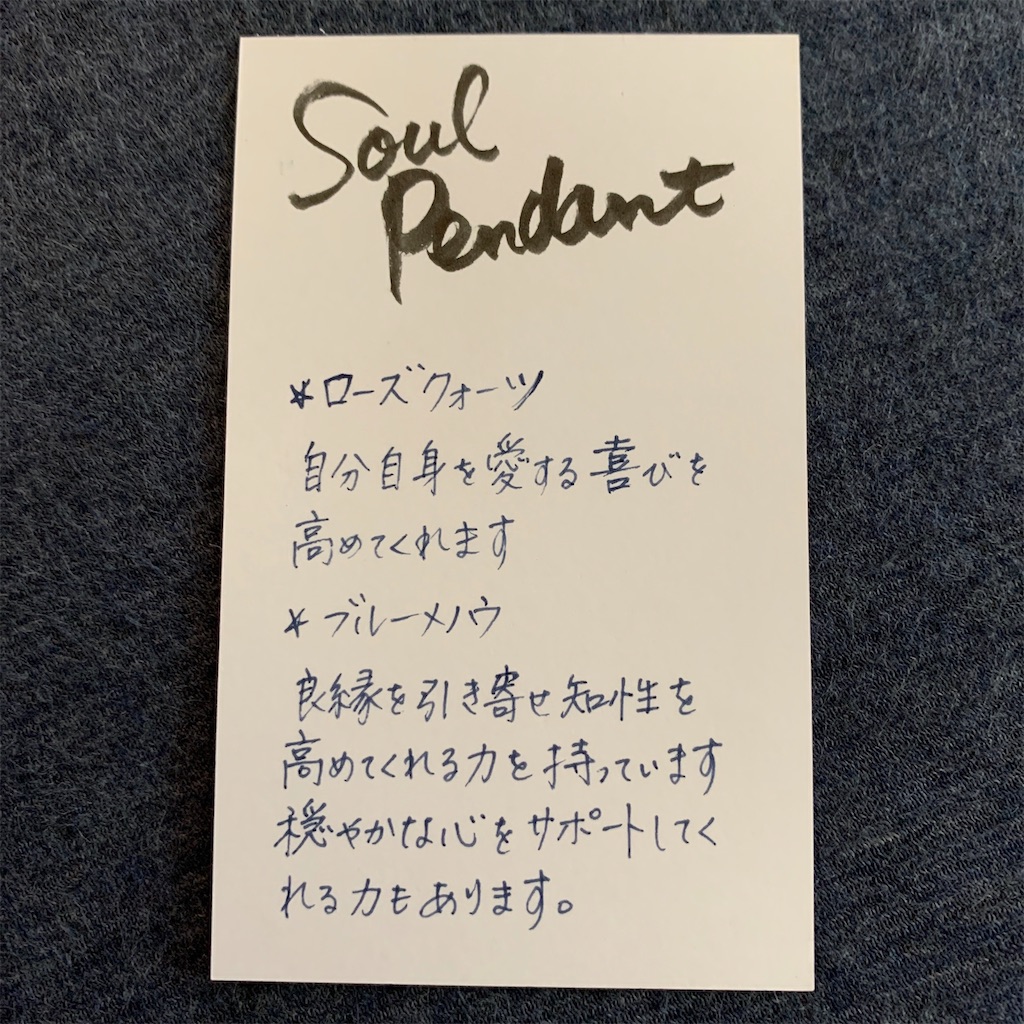 Soul
Pendant
*ローズクォーツ
自分自身を愛する喜びを
高めてくれます
*ブルーメノウ
良縁を引き寄せ知性を
高めてくれる力を持っています
穏やかな心をサポートしてく
れる力もあります。